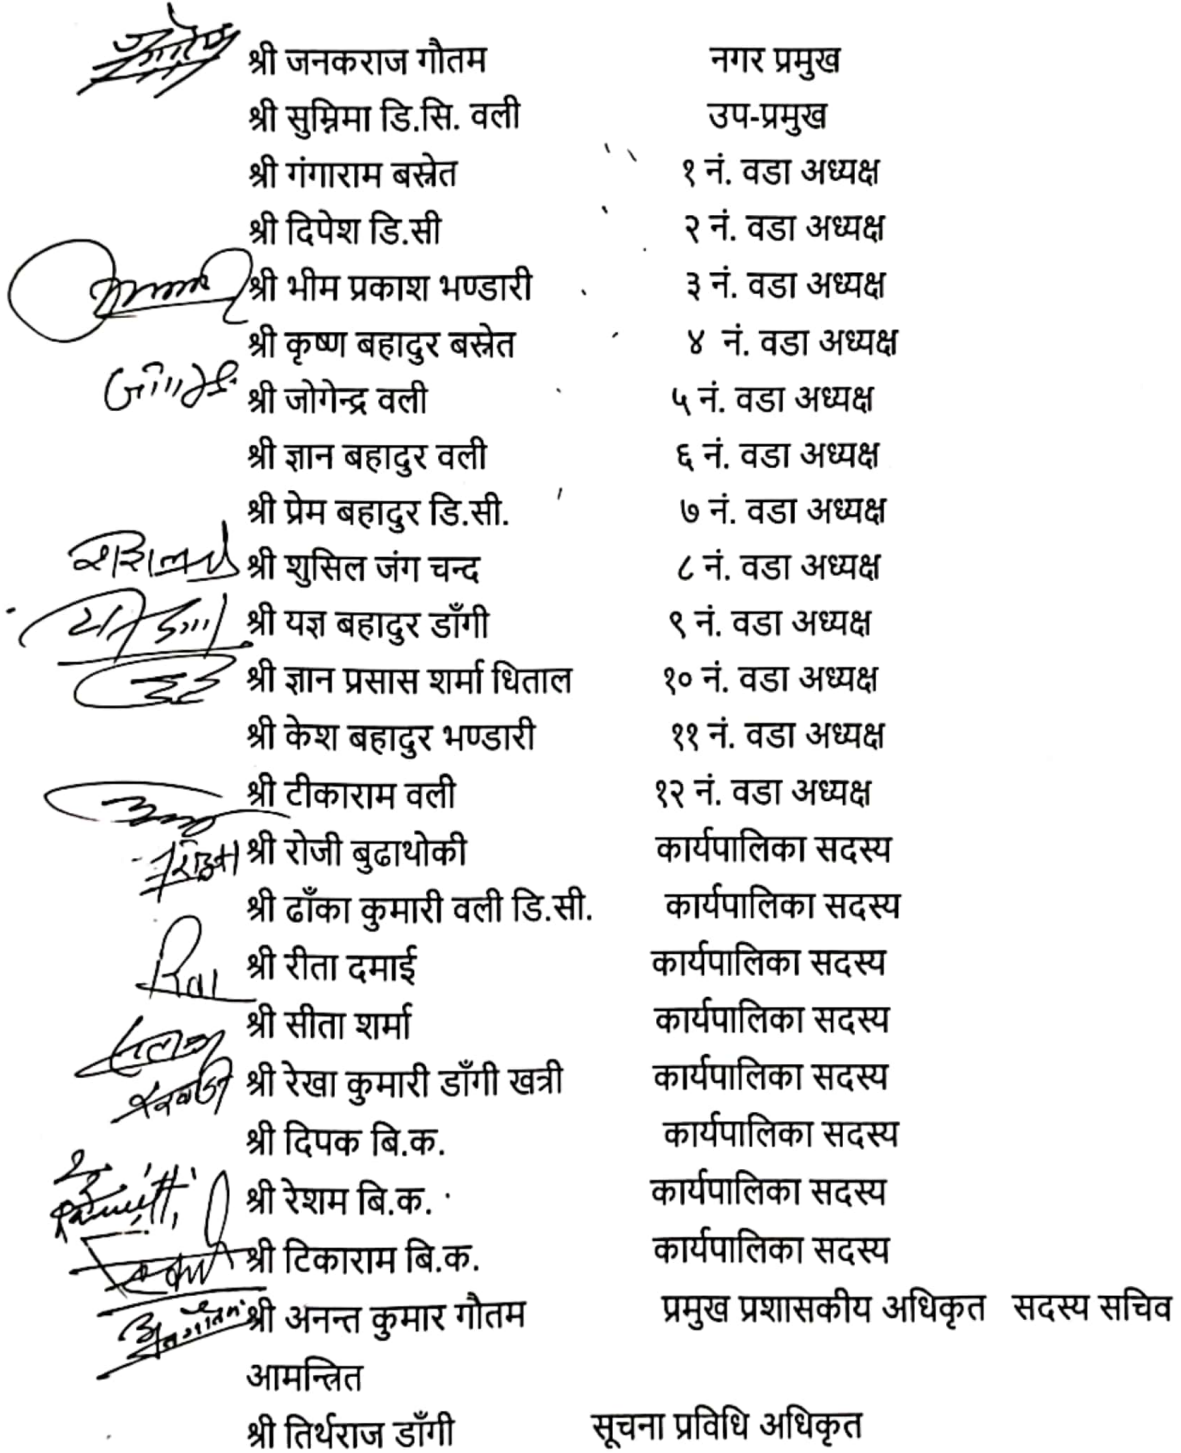 श्री जनकराज गौतम नगर प्रमुख
श्री सुम्निमा डि.सि. वली उप-प्रमुख
श्री गंगाराम बस्नेत १ नं. वडा अध्यक्ष
श्री दिपेश डि.सी २ नं. वडा अध्यक्ष
श्री भीम प्रकाश भण्डारी ३ नं. वडा अध्यक्ष
श्री कृष्ण बहादुर बस्नेत ४ नं. वडा अध्यक्ष
श्री जोगेन्द्र वली ५ नं. वडा अध्यक्ष
श्री ज्ञान बहादुर वली ६ नं. वडा अध्यक्ष
श्री प्रेम बहादुर डि.सी. ७ नं. वडा अध्यक्ष
श्री शुसिल जंग चन्द ८ नं. वडा अध्यक्ष
श्री यज्ञ बहादुर डाँगी ९ नं. वडा अध्यक्ष
श्री ज्ञान प्रसास शर्मा धिताल १० नं. वडा अध्यक्ष
श्री केश बहादुर भण्डारी ११ नं. वडा अध्यक्ष
श्री टीकाराम वली १२ नं. वडा अध्यक्ष
श्री रोजी बुढाथोकी कार्यपालिका सदस्य
श्री ढाँका कुमारी वली डि.सी. कार्यपालिका सदस्य
श्री रीता दमाई कार्यपालिका सदस्य
श्री सीता शर्मा कार्यपालिका सदस्य
श्री रेखा कुमारी डाँगी खत्री कार्यपालिका सदस्य
श्री दिपक बि.क. कार्यपालिका सदस्य
श्री रेशम बि.क. कार्यपालिका सदस्य
श्री टिकाराम बि.क. कार्यपालिका सदस्य
श्री अनन्त कुमार गौतम प्रमुख प्रशासकीय अधिकृत सदस्य सचिव
आमन्त्रित
श्री तिर्थराज डाँगी सूचना प्रविधि अधिकृत